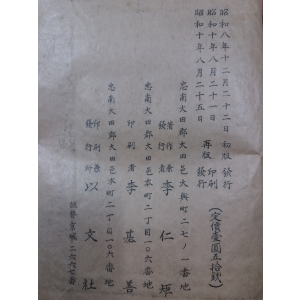 昭和八年十二月二十二日 初版 發行
昭和十年八月二十一日 印刷
昭和十年八月二十五日 再版 發行
(定價壹圓五拾錢)
忠南大田郡大田邑大興町二七ノ一番地
著作兼發行者 李仁
忠南大田郡大田邑本町二丁目一〇六番地
印刷者 李甚善
忠南大田郡大田邑本町二丁目一〇六番地
印刷兼發行所 以文社
振替京城二六六七番